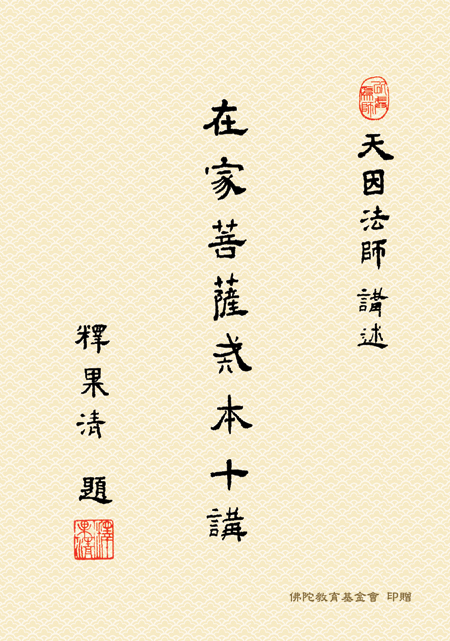 天因法師 講述
在家菩薩戒本十講
釋果清 題
釋果清
佛陀教育基金會 印贈